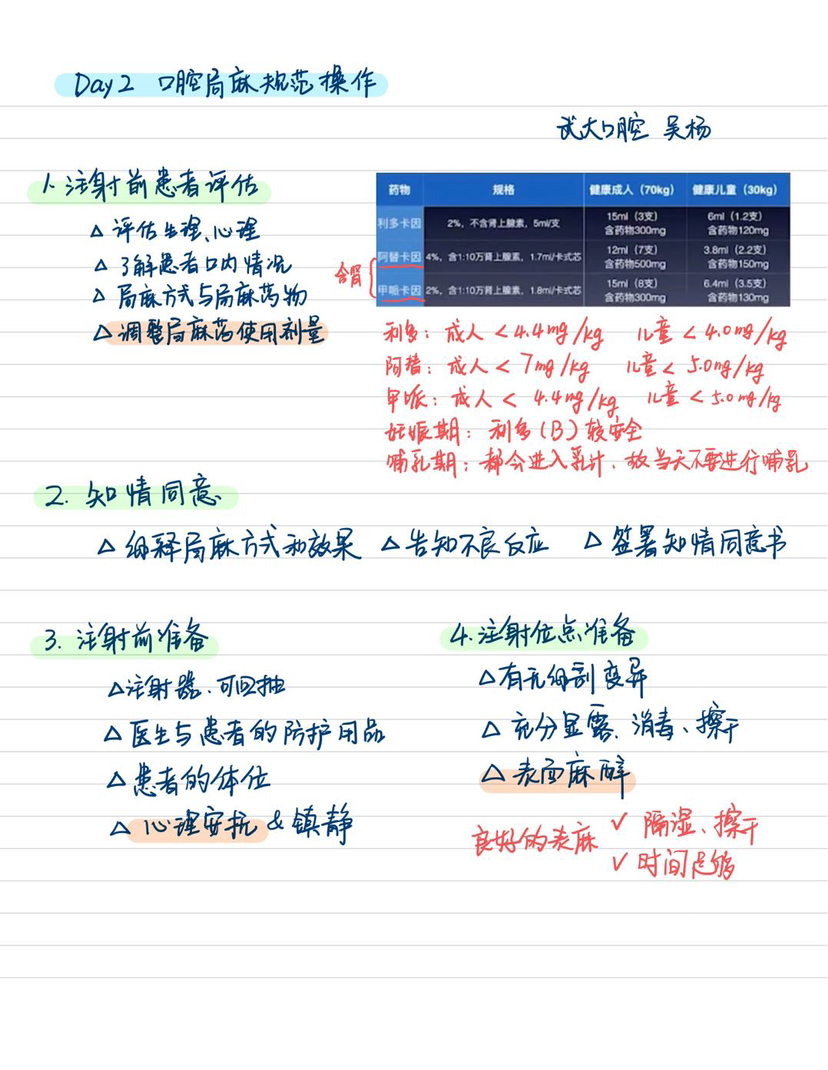 Day 2 口腔局麻规范操作
武大口腔 吴杨
1. 注射前患者评估
△ 评估生理、心理
△ 了解患者口内情况
△ 局麻方式与局麻药物
△ 调整局麻药使用剂量
药物 规格 健康成人（70kg） 健康儿童（30kg）
利多卡因 2%，不含肾上腺素，5ml/支 15ml（3支） 含药物300mg 6ml（1.2支） 含药物120mg
阿替卡因 4%，含1:10万肾上腺素，1.7ml/卡式芯 12ml（7支） 含药物500mg 3.8ml（2.2支） 含药物150mg
甲哌卡因 2%，含1:10万肾上腺素，1.8ml/卡式芯 15ml（8支） 含药物300mg 6.4ml（3.5支） 含药物130mg
含肾
利多：成人 < 4.4mg/kg 儿童 < 4.0mg/kg
阿替：成人 < 7mg/kg 儿童 < 5.0mg/kg
甲哌：成人 < 4.4mg/kg 儿童 < 5.0mg/kg
妊娠期：利多（B）较安全
哺乳期：都会进入乳汁，故当天不要进行哺乳
2. 知情同意
△ 细释局麻方式和效果 △ 告知不良反应 △ 签署知情同意书
3. 注射前准备
△ 注射器、可回抽
△ 医生与患者的防护用品
△ 患者的体位
△ 心理安抚 & 镇静
4. 注射位点准备
△ 有无解剖变异
△ 充分显露、消毒、擦干
△ 表面麻醉
良好的表麻 ✓ 隔湿、擦干
✓ 时间足够